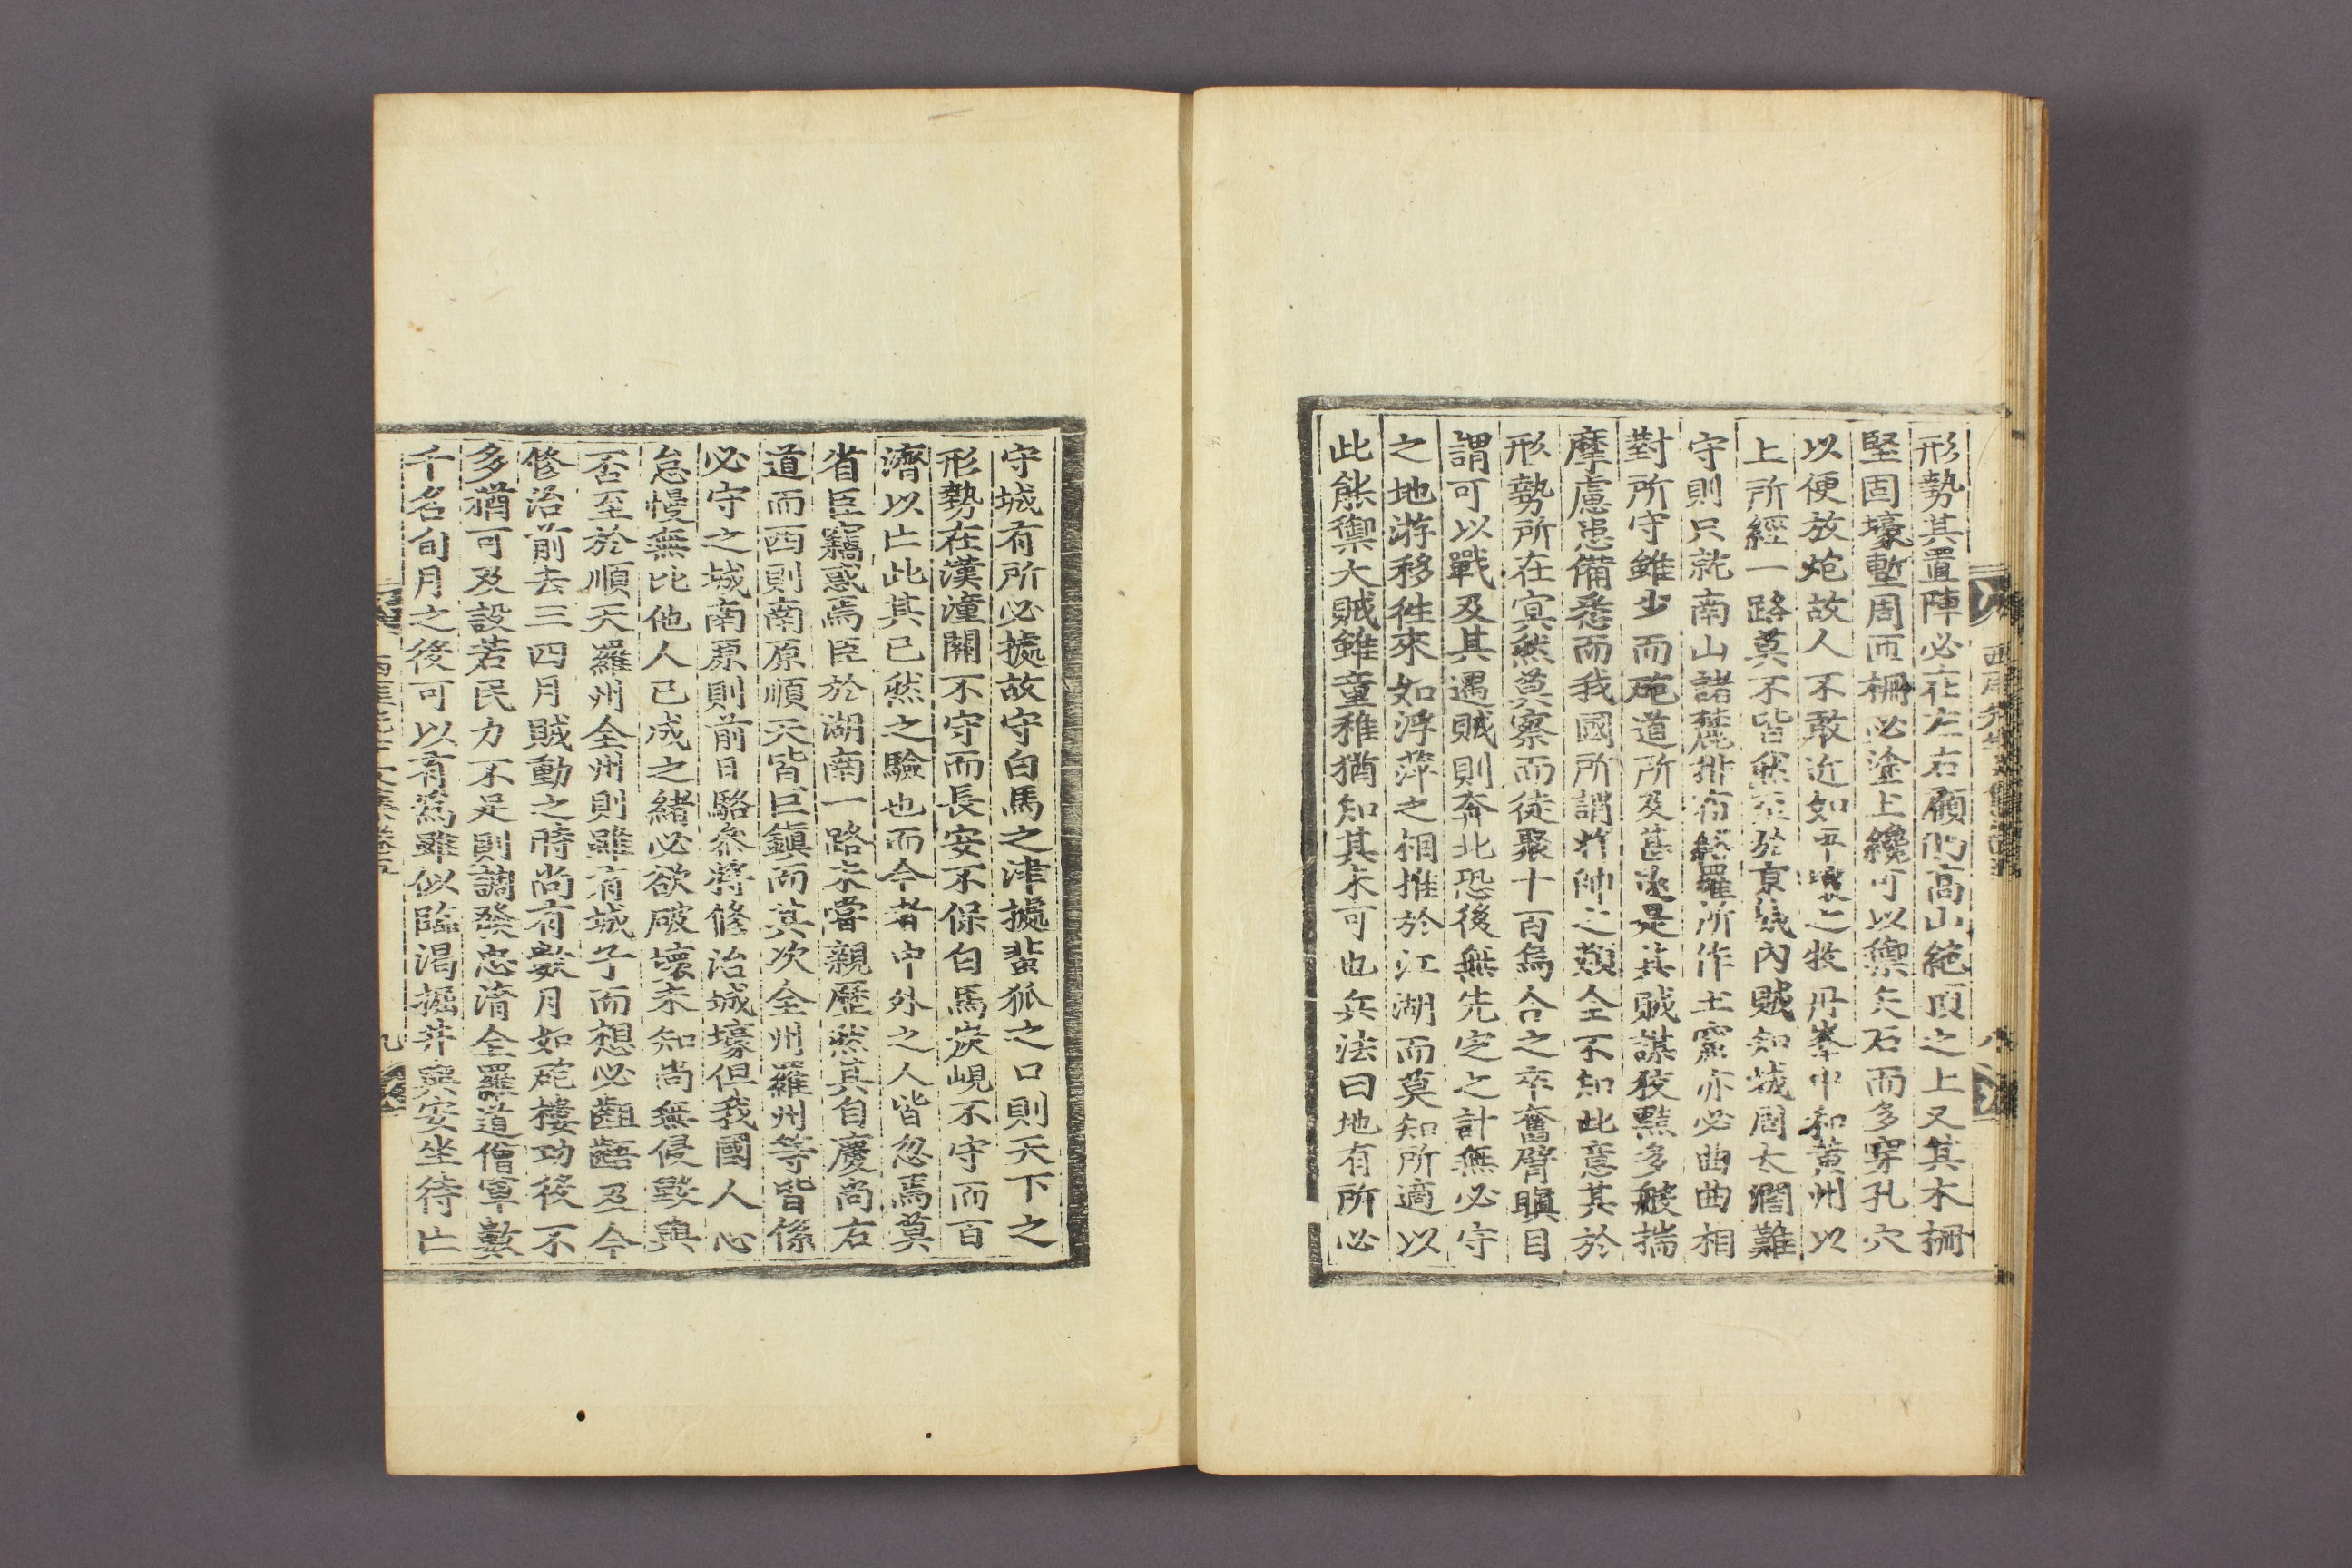 形勢其置陣必在左右顧眄高山絶頂之上又其木柵
堅固壕塹周匝柵必塗土纔可以禦矢石而多穿孔穴
以便放炮故人不敢近如平壤之牧丹峯中和黃州以
上所經一路莫不皆然至於京城內賊知城周太濶難
守則只就南山諸麓排布經羅所作土窟亦必曲曲相
對所守雖少而砲道所及甚遠是其賊謀狡黠多般揣
摩慮患備悉而我國所謂將帥之類全不知此意其於
形勢所在冥然莫察而徒聚十百烏合之卒奮臂瞋目
謂可以戰及其遇賊則奔北恐後無先定之計無必守
之地游移往來如浮萍之相推於江湖而莫知所適以
此能禦大賊雖童稚猶知其未可也兵法曰地有所必
守城有所必據故守白馬之津據蜚狐之口則天下之
形勢在漢潼關不守而長安不保白馬炭峴不守而百
濟以亡此其已然之驗也而今者中外之人皆忽焉莫
省臣竊惑焉臣於湖南一路未嘗親歷然其自慶尚右
道而西則南原順天皆巨鎭而其次全州羅州等皆係
必守之城南原則前日駱參將修治城壕但我國人心
怠慢無比他人已成之緖必欲破壞未知尚無侵毀與
否至於順天羅州全州則雖有城子而想必齟齬及今
修治前去三四月賊動之時尚有數月如砲樓功役不
多猶可及設若民力不足則調發忠淸全羅道僧軍數
千名旬月之後可以有爲雖似臨渴掘井與安坐待亡
西厓先生文集卷五
九